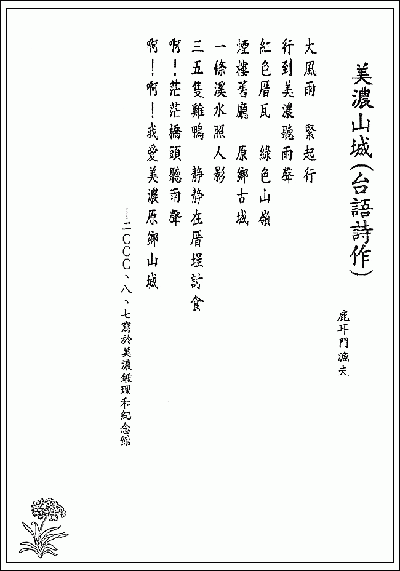 美濃山城(台語詩作)
鹿耳門漁夫
大風雨　緊起行
行到美濃聽雨聲
紅色厝瓦　綠色山嶺
煙樓舊廳　原鄉古城
一條溪水照人影
三五隻雞鴨　靜靜在厝埕討食
啊！茫茫橋頭聽雨聲
啊！啊！我愛美濃原鄉山城
—二〇〇〇、八、七寫於美濃鍾理和紀念館